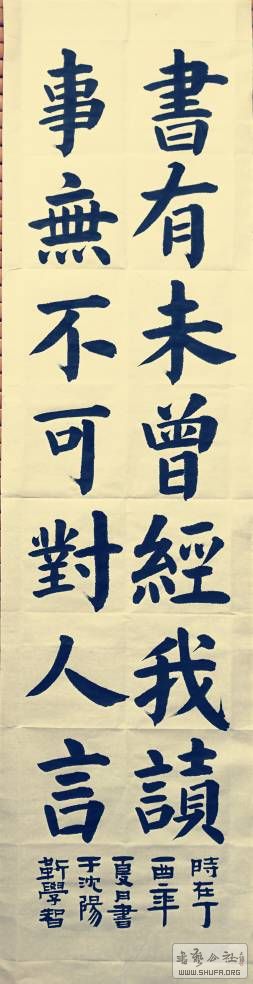 書有未曾經我讀
事無不可對人言
時在丁
酉年
夏月書
于沈陽
靳學智
书艺公社
WWW.SHUFA.ORG